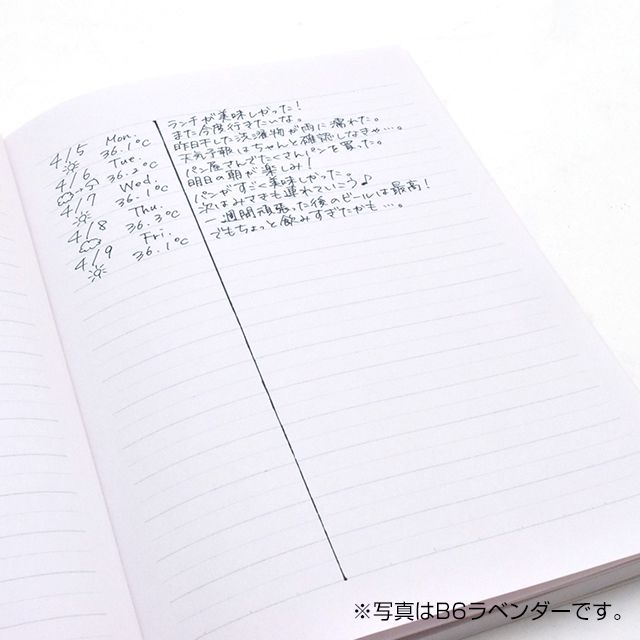 4/5 Mon.
36.1℃
4/6 Tue.
36.2℃
4/7 Wed.
36.1℃
4/8 Thu.
36.3℃
4/9 Fri.
36.1℃
ランチが美味しかった!
また今度行きたいな。
昨日干した洗濯物が雨に濡れた。
天気予報はちゃんと確認しなきゃ…。
パン屋さんでたくさんパンを買った。
明日の朝が楽しみ!
パンがすごく美味しかった。
次はみさきも連れていこう♪
一週間頑張った後のビールは最高!
でもちょっと飲みすぎたかも…。
※写真はB6ラベンダーです。